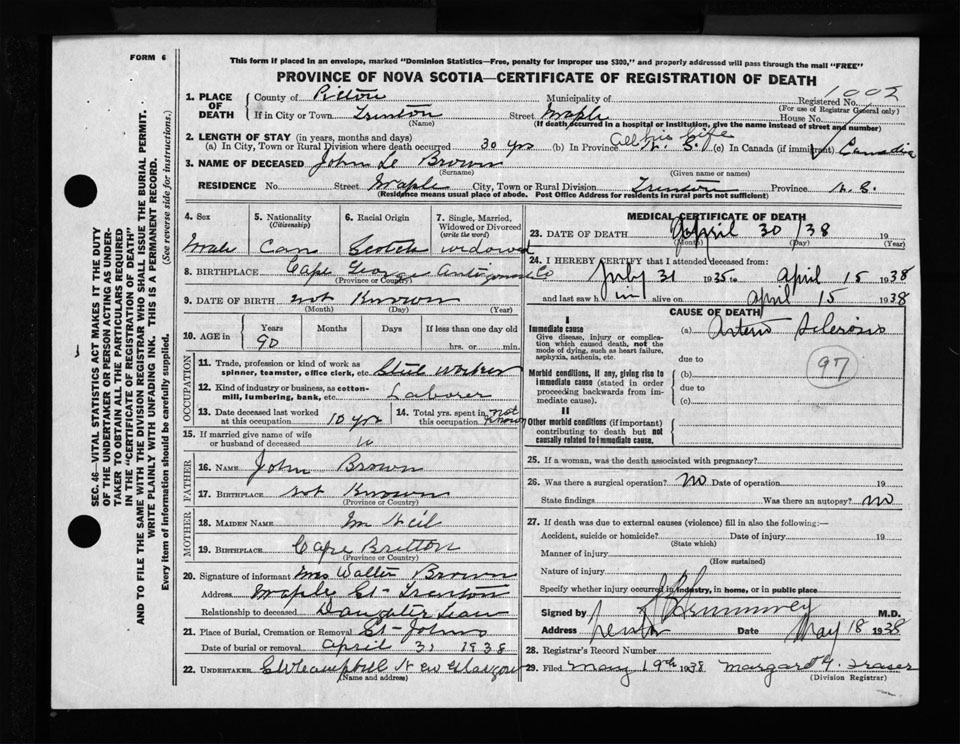 FORM 6
This form if placed in an envelope, marked "Dominion Statistics—Free, penalty for improper use $300," and properly addressed will pass through the mail "FREE"
PROVINCE OF NOVA SCOTIA—CERTIFICATE OF REGISTRATION OF DEATH
SEC. 46—VITAL STATISTICS ACT MAKES IT THE DUTY
OF THE UNDERTAKER OR PERSON ACTING AS UNDER-
TAKER TO OBTAIN ALL THE PARTICULARS REQUIRED
IN THE "CERTIFICATE OF REGISTRATION OF DEATH"
AND TO FILE THE SAME WITH THE DIVISION REGISTRAR WHO SHALL ISSUE THE BURIAL PERMIT.
WRITE PLAINLY WITH UNFADING INK. THIS IS A PERMANENT RECORD.
Every item of information should be carefully supplied. (See reverse side for instructions.)
1. PLACE OF DEATH County of Pictou Municipality of Registered No. 1002
(For use of Registrar General only)
If in City or Town Trenton Street Maple House No.
(Name) (If death occurred in a hospital or institution, give the name instead of street and number)
2. LENGTH OF STAY (in years, months and days) All his life
(a) In City, Town or Rural Division where death occurred 30 yrs (b) In Province N. S. (c) In Canada (if immigrant) Canadian
3. NAME OF DECEASED John Brown
(Surname) (Given name or names)
RESIDENCE No. Street Maple City, Town or Rural Division Trenton Province N. S.
(Residence means usual place of abode. Post Office Address for residents in rural parts not sufficient)
4. Sex Male
5. Nationality (Citizenship) Can
6. Racial Origin Scotch
7. Single, Married, Widowed or Divorced (write the word) widowed
8. BIRTHPLACE Cape George Antigonish Co
(Province or Country)
9. DATE OF BIRTH not Known
(Month) (Day) (Year)
10. AGE in Years 90 Months Days If less than one day old
hrs. or min.
OCCUPATION
11. Trade, profession or kind of work as spinner, teamster, office clerk, etc. Steel Worker
12. Kind of industry or business, as cotton-mill, lumbering, bank, etc. Laborer
13. Date deceased last worked at this occupation 10 yrs
14. Total yrs. spent in this occupation not Known
15. If married give name of wife or husband of deceased
FATHER
16. NAME John Brown
17. BIRTHPLACE not Known
(Province or Country)
MOTHER
18. MAIDEN NAME Mc Neil
19. BIRTHPLACE Cape Bretton
(Province or Country)
20. Signature of informant Mrs Walter Brown
Address Maple St- Trenton
Relationship to deceased Daughter
21. Place of Burial, Cremation or Removal St- Johns
Date of burial or removal April 31 1938
22. UNDERTAKER Campbell New Glasgow
(Name and address)
MEDICAL CERTIFICATE OF DEATH
23. DATE OF DEATH April 30/38 19
(Month) (Day) (Year)
24. I HEREBY CERTIFY that I attended deceased from:
July 31 1935 to April 15 1938
and last saw him alive on April 15 1938
CAUSE OF DEATH
I
Immediate cause
Give disease, injury or complication which caused death, not the mode of dying, such as heart failure, asphyxia, asthenia, etc.
(a) Arterio Sclerosis
due to
97
Morbid conditions, if any, giving rise to immediate cause (stated in order proceeding backwards from immediate cause)
(b)
due to
(c)
II
Other morbid conditions (if important) contributing to death but not causally related to immediate cause.
25. If a woman, was the death associated with pregnancy?
26. Was there a surgical operation? No Date of operation 19
State findings Was there an autopsy? no
27. If death was due to external causes (violence) fill in also the following:—
Accident, suicide or homicide? Date of injury 19
(State which)
Manner of injury
(How sustained)
Nature of injury
Specify whether injury occurred in industry, in home, or in public place
Signed by M.D.
Address Trenton Date May 18 1938
28. Registrar's Record Number
29. Filed May 19th 1938 Margaret Fraser
(Division Registrar)